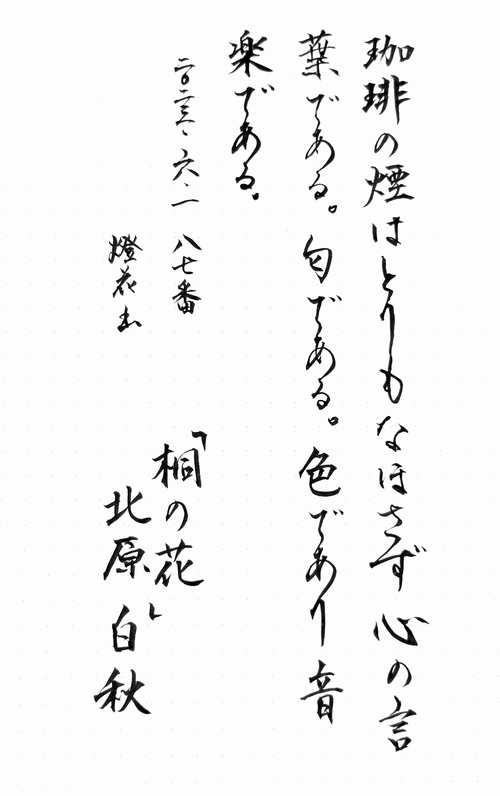 珈琲の煙はとりもなほさず心の言
葉である。匂である。色であり音
楽である。
二〇二三、六、一 八七番
燈花出
「桐の花」
北原白秋